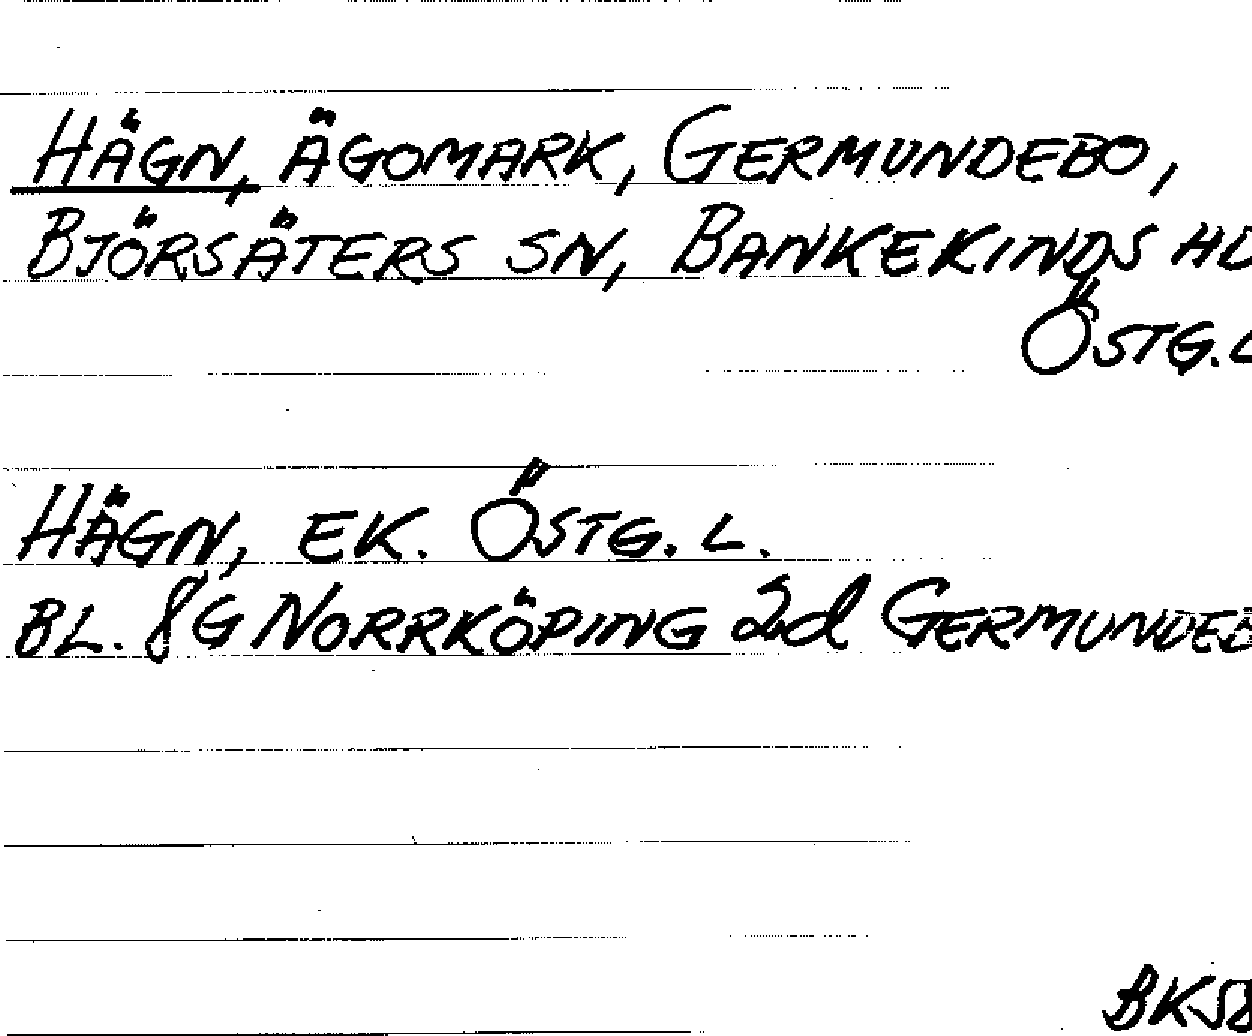 HÄGN, ÄGOMARK, GERMUNDEBO,
BJÖRSÄTERS SN, BANKEKINDS HD
ÖSTG. L
HÄGN, EK. ÖSTG. L.
BL. 8G NORRKÖPING 2d GERMUNDEB